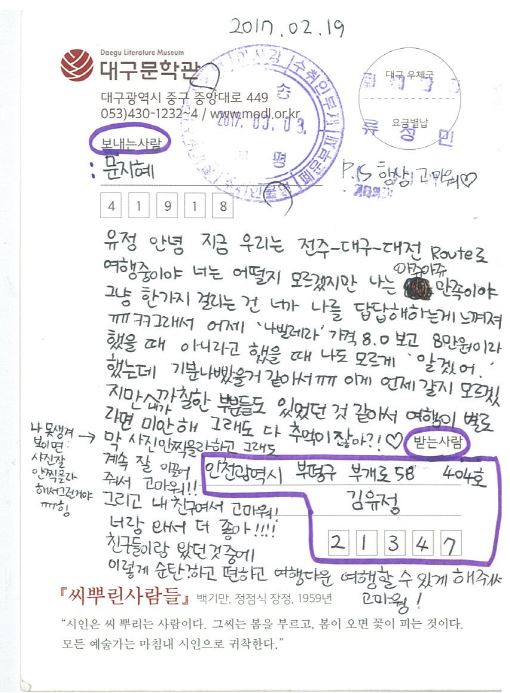 2017.02.19
Daegu Literature Museum
대구문학관
대구광역시 중구 중앙대로 449
053)430-1232~4 / www.modl.or.kr
대구 우체국
요금별납
수취인부재
2017.03.03.
류정민
보내는사람
: 문지혜
P.S 항상 고마워♡
41918
유정 안녕 지금 우리는 전주-대구-대전 Route로
여행중이야 너는 어떨지 모르겠지만 나는 아주아주 만족이야
그냥 한가지 걸리는 건 너가 나를 답답해하는게 느껴져
ㅠㅠ ㅋㅋ그래서 어제 '나빌레라' 가격 8.0 보고 8만원이라
했을 때 아니라고 했을 때 나도 모르게 '알겠어.'
했는데 기분나빴을거 같아서ㅠㅠ 이게 언제 갈지 모르겠
지만 내가 까칠한 부분들도 있었던 것 같아서 여행이 별로
라면 미안해 그래도 다 추억이잖아?!♡
받는사람
나 못생겨
보이면
사진잘
안찍을라
해서그런거야
ㅠㅠ힝
막 사진안찍을라하고 그래도
계속 잘 이끌어
줘서 고마워!!
그리고 내 친구여서 고마워!
너랑 와서 더 좋아!!!!
친구들이랑 왔던것중에
이렇게 순탄하고 편하고 여행다운 여행할 수 있게 해주어
고마웡!
인천광역시 부평구 부개로 58 404호
김유정
21347
『씨뿌린사람들』 백기만, 정점식 장정, 1959년
"시인은 씨 뿌리는 사람이다. 그씨는 봄을 부르고, 봄이 오면 꽃이 피는 것이다.
모든 예술가는 마침내 시인으로 귀착한다."